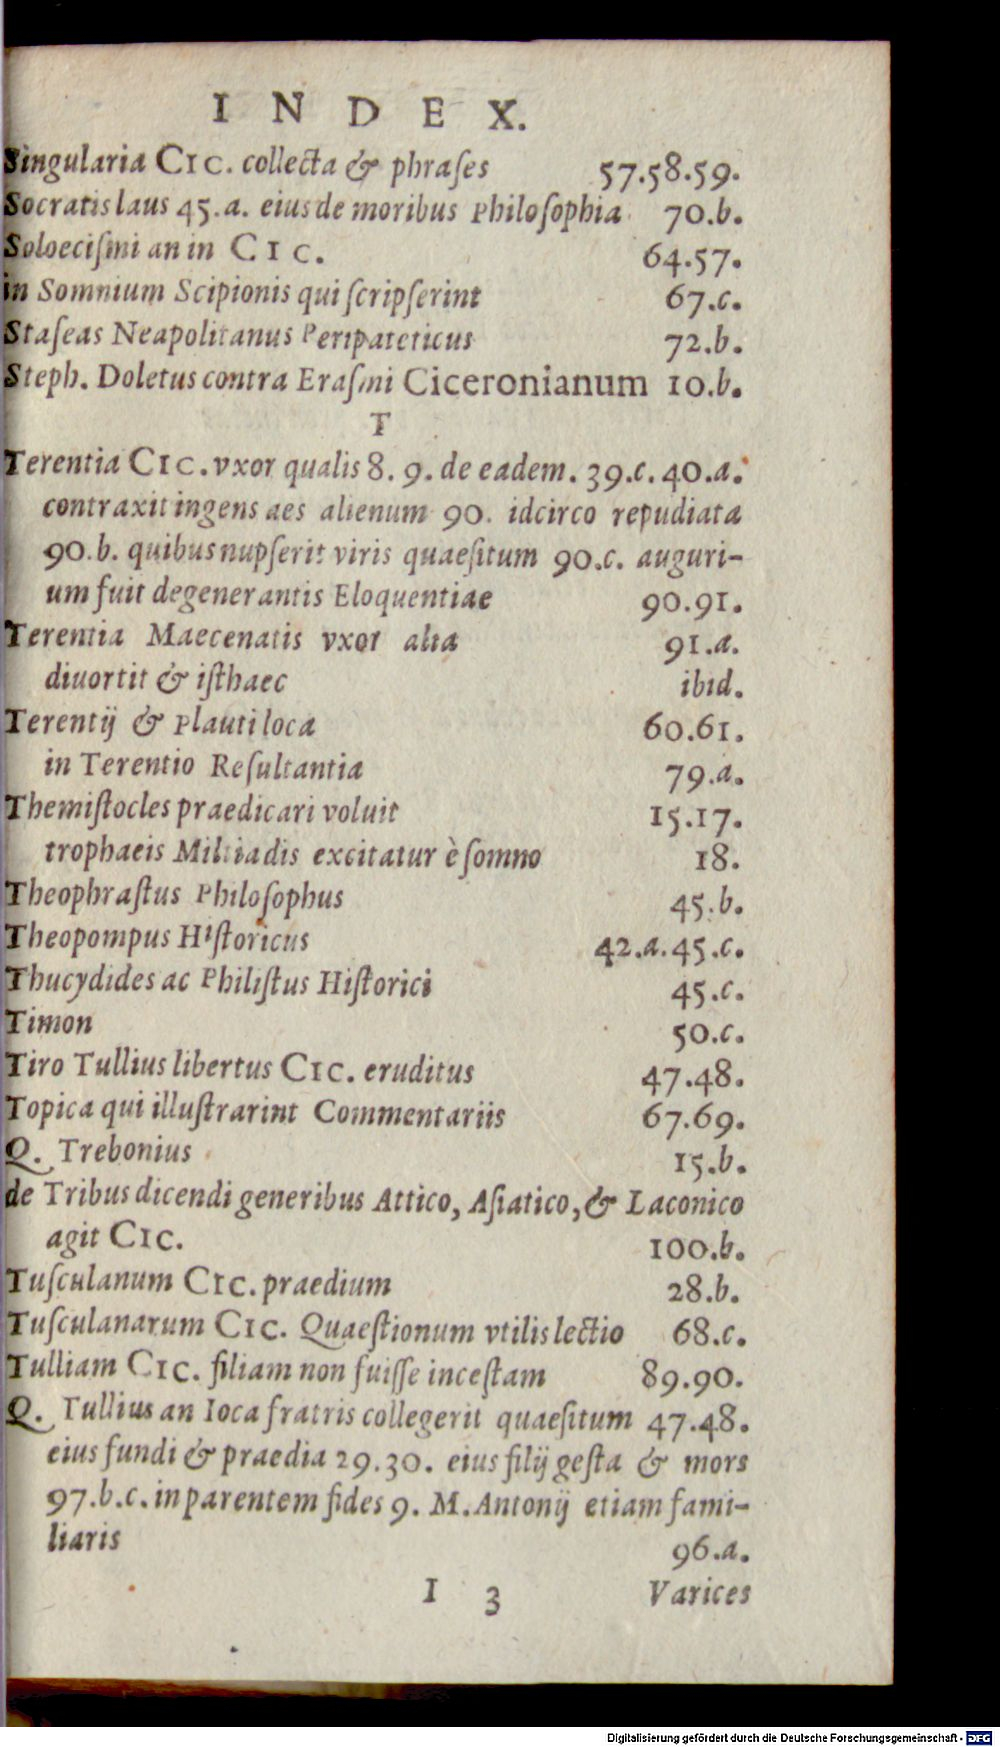 INDEX.
Singularia CIC. collecta & phraſes 57.58.59.
Socratis laus 45.a. eius de moribus Philoſophia 70.b.
Soloeciſmi an in CIC. 64.57.
in Somnium Scipionis qui ſcripſerint 67.c.
Staſeas Neapolitanus Peripateticus 72.b.
Steph. Doletus contra Eraſmi Ciceronianum 10.b.
T
Terentia CIC. vxor qualis 8. 9. de eadem. 39.c. 40.a.
contraxit ingens aes alienum 90. idcirco repudiata
90.b. quibus nupſerit viris quaeſitum 90.c. auguri-
um fuit degenerantis Eloquentiae 90.91.
Terentia Maecenatis vxor alia 91.a.
diuortit & iſthaec ibid.
Terentij & Plauti loca 60.61.
in Terentio Reſultantia 79.a.
Themiſtocles praedicari voluit 15.17.
trophaeis Miltiadis excitatur è ſomno 18.
Theophraſtus Philoſophus 45.b.
Theopompus Hiſtoricus 42.a.45.c.
Thucydides ac Philiſtus Hiſtorici 45.c.
Timon 50.c.
Tiro Tullius libertus CIC. eruditus 47.48.
Topica qui illuſtrarint Commentariis 67.69.
Q. Trebonius 15.b.
de Tribus dicendi generibus Attico, Aſiatico, & Laconico
agit CIC. 100.b.
Tuſculanum CIC. praedium 28.b.
Tuſculanarum CIC. Quaeſtionum vtilis lectio 68.c.
Tulliam CIC. filiam non fuiſſe inceſtam 89.90.
Q. Tullius an Ioca fratris collegerit quaeſitum 47.48.
eius fundi & praedia 29.30. eius filij geſta & mors
97.b.c. in parentem fides 9. M. Antonij etiam fami-
liaris 96.a.
I 3 Varices
Digitalisierung gefördert durch die Deutsche Forschungsgemeinschaft - DFG